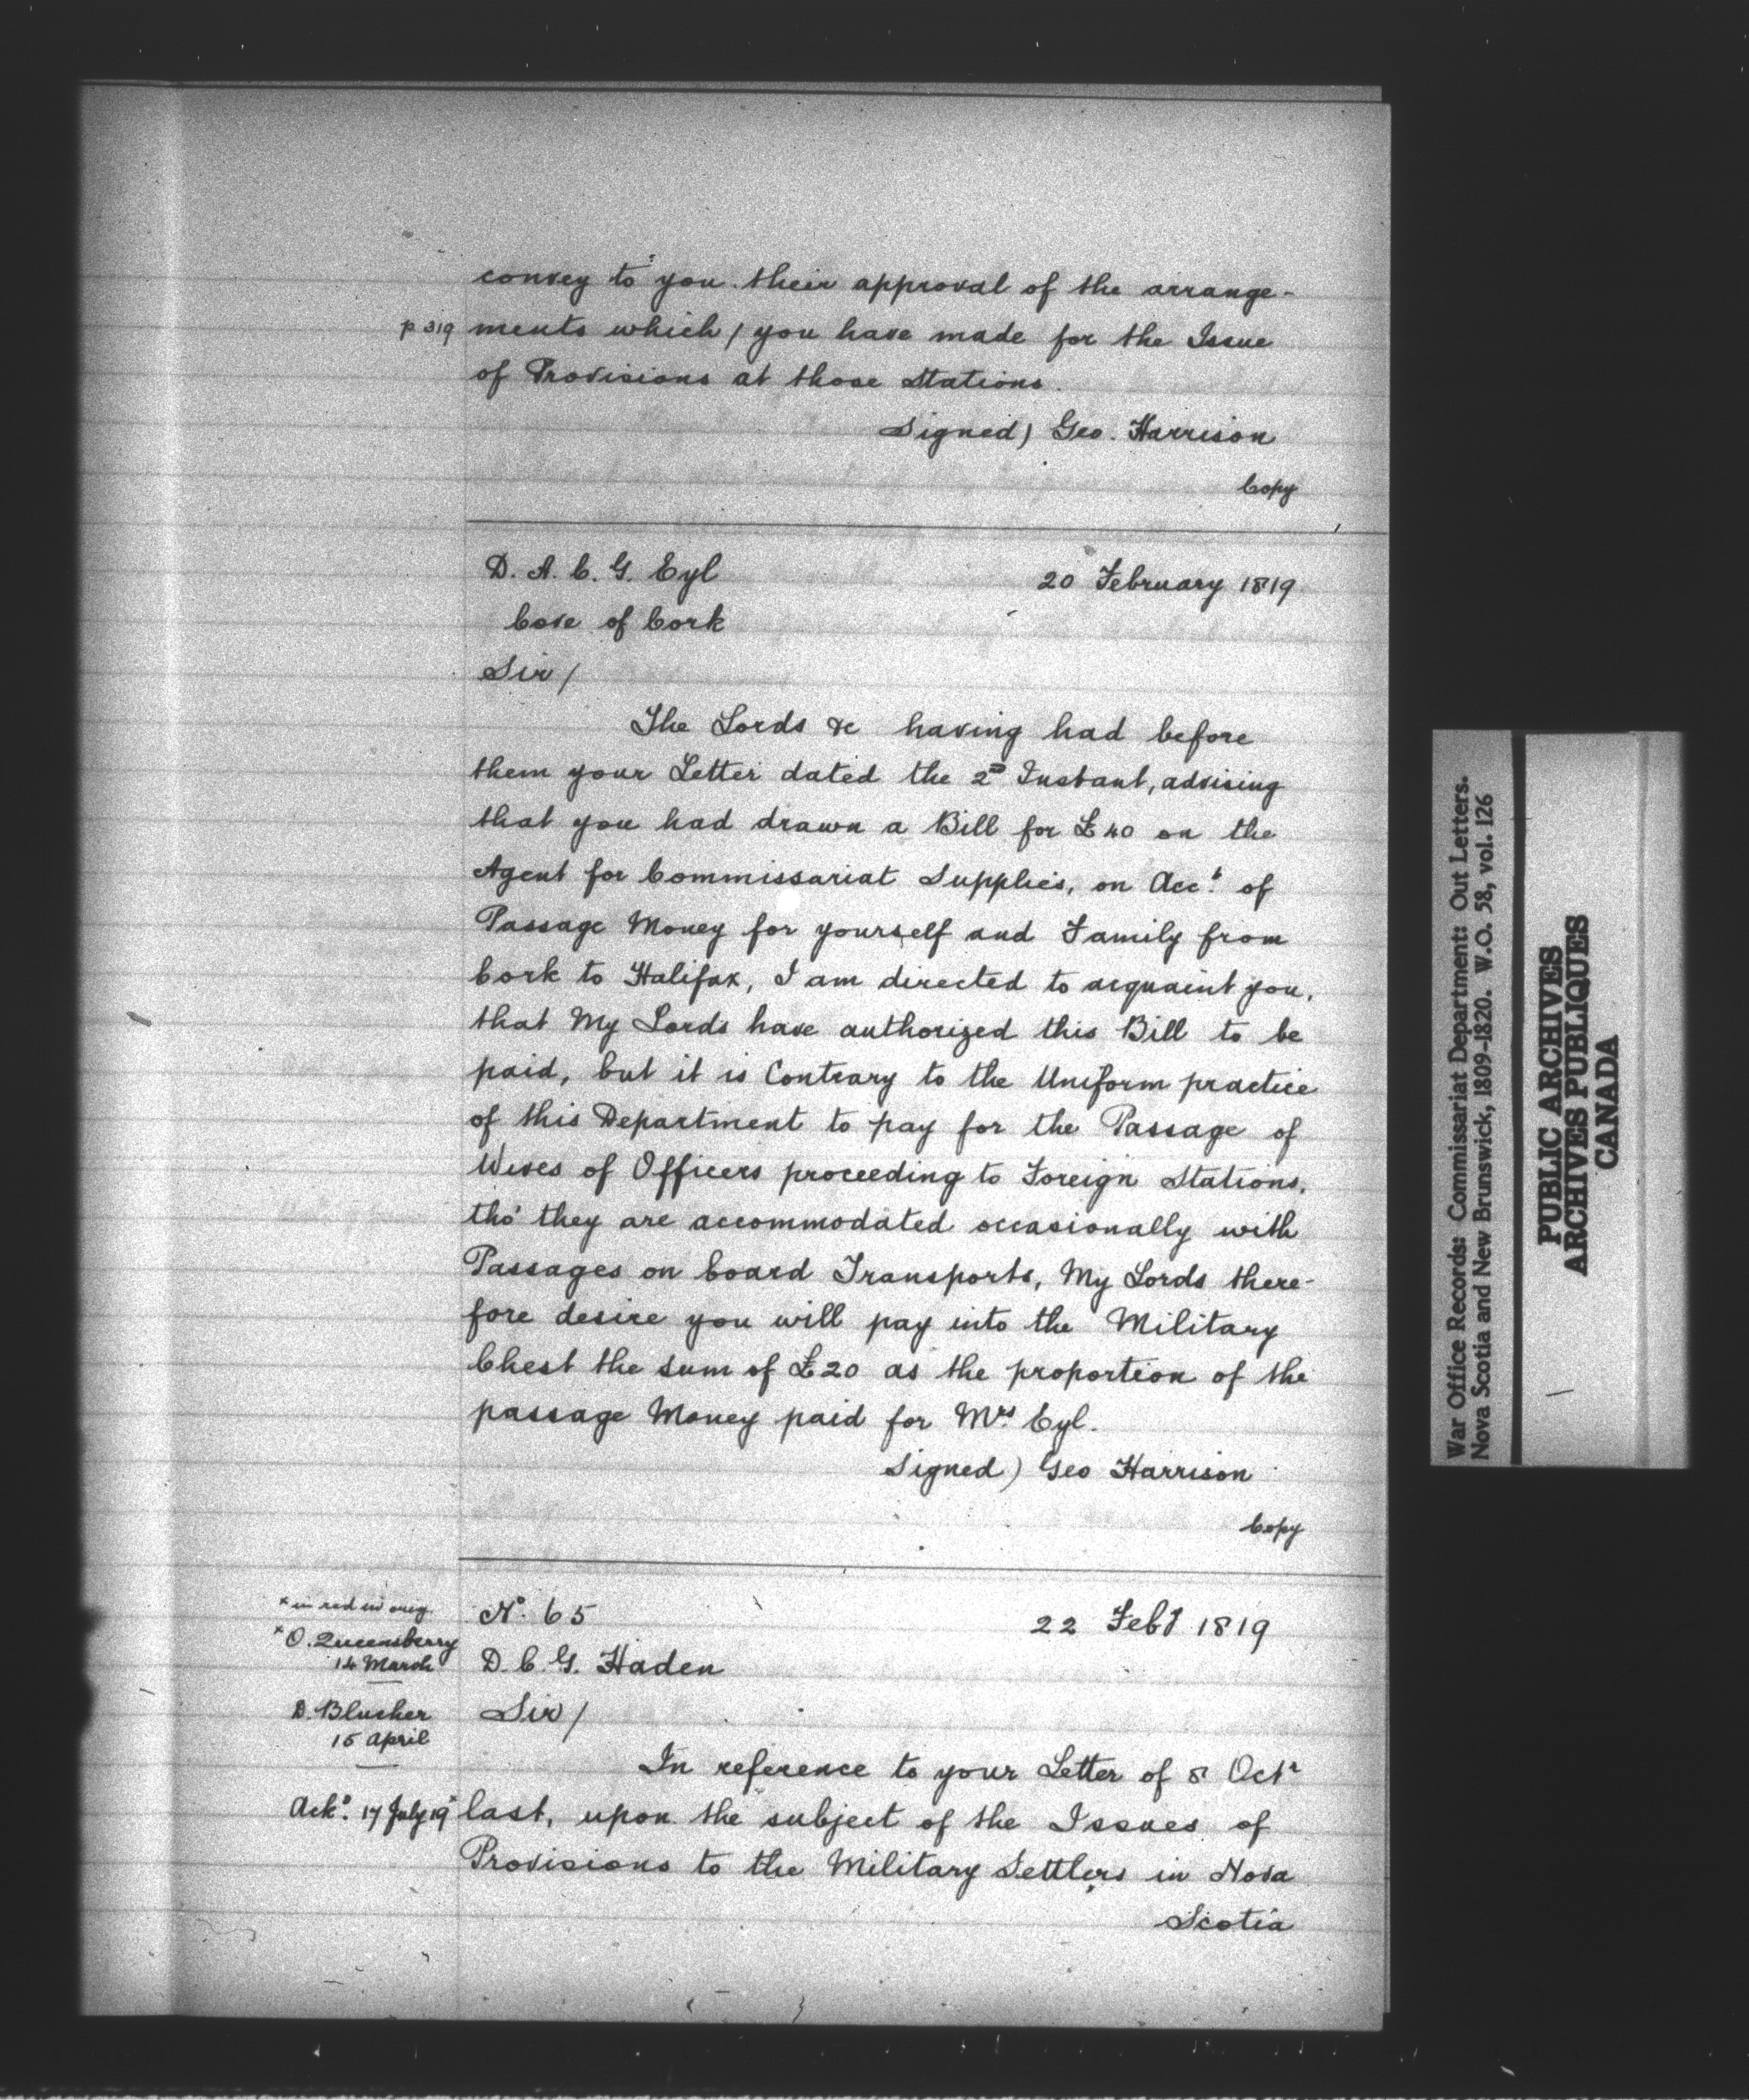 convey to you their approval of the arrange-
p 319 ments which / you have made for the Issue
of Provisions at those Stations.
Signed) Geo. Harrison
Copy
D. A. C. G. Eyl
20 February 1819
Cove of Cork
Sir /
The Lords &c having had before
them your Letter dated the 2D Instant, advising
that you had drawn a Bill for £40 on the
Agent for Commissariat Supplies, on Acct. of
Passage Money for yourself and Family from
Cork to Halifax, I am directed to acquaint you,
that My Lords have authorized this Bill to be
paid, but it is Contrary to the Uniform practice
of this Department to pay for the Passage of
Wives of Officers proceeding to Foreign Stations,
tho' they are accommodated occasionally with
Passages on board Transports, My Lords there-
fore desire you will pay into the Military
Chest the sum of £20 as the proportion of the
passage Money paid for Mrs. Eyl.
Signed) Geo Harrison
Copy
* in red in orig.
No. 65
22 Feby 1819
* O. Queensberry
14 March
D. C. G. Haden
D. Blucher
15 April
Sir /
In reference to your Letter of 8 Octr
Ackd. 17 July 19 last, upon the subject of the Issues of
Provisions to the Military Settlers in Nova
Scotia
War Office Records: Commissariat Department: Out Letters.
Nova Scotia and New Brunswick, 1809-1820. W.O. 58, vol. 126
PUBLIC ARCHIVES
ARCHIVES PUBLIQUES
CANADA